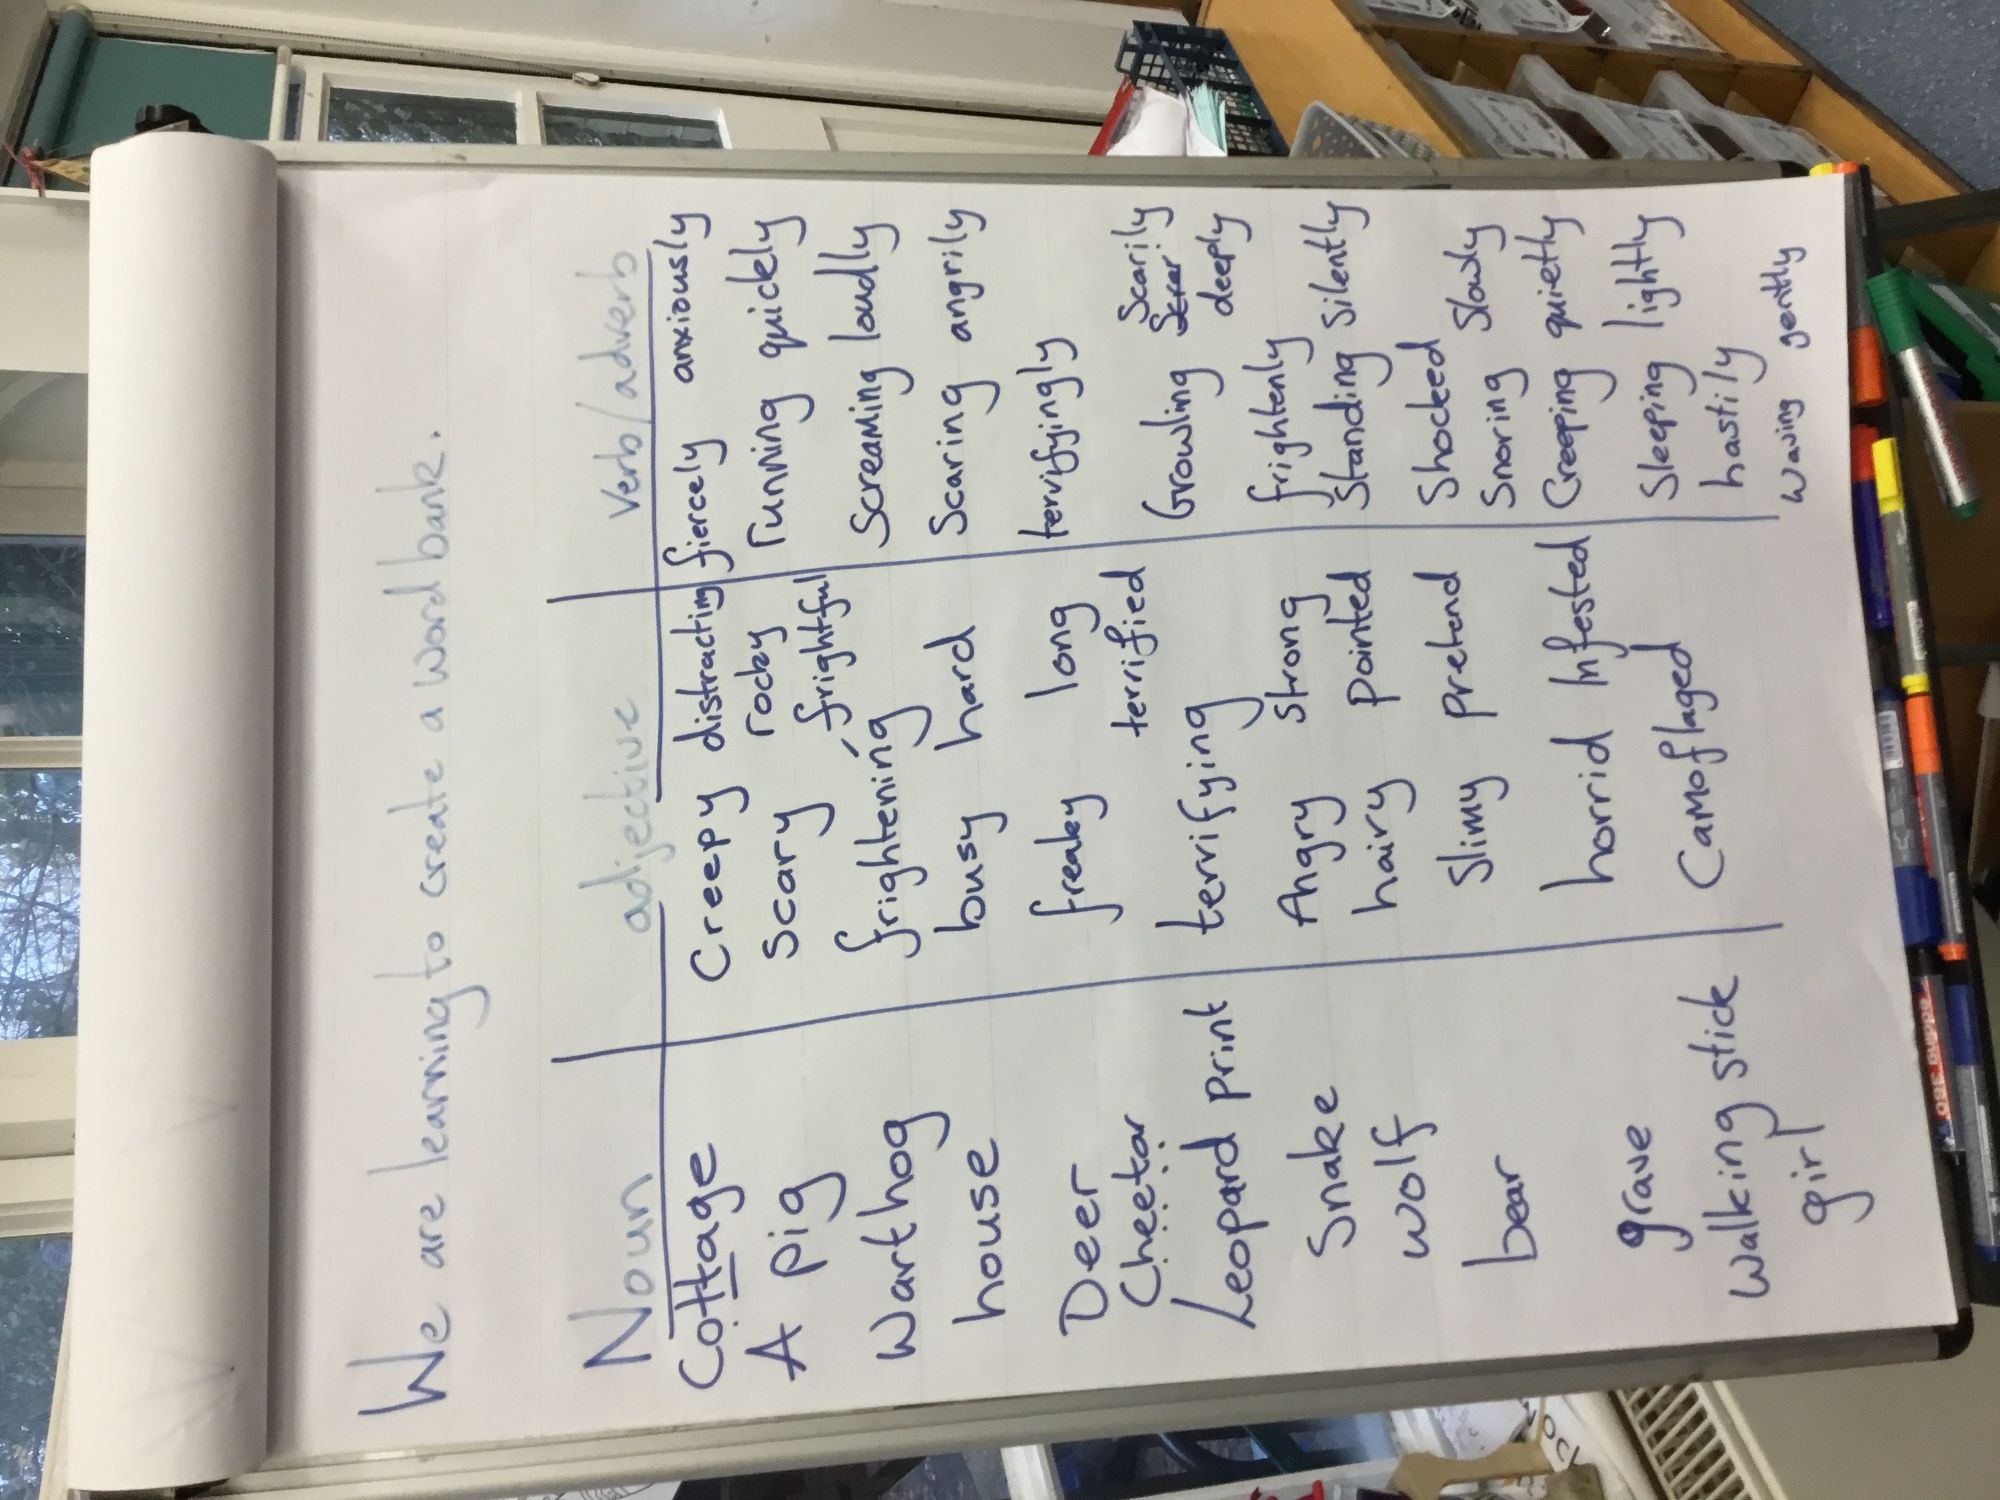 We are learning to create a word bank.
Noun adjective Verb/adverb
Cottage Creepy distracting fiercely anxiously
A pig scary rocky running quickly
frightening frightful screaming loudly
Warthog
house busy hard scaring angrily
Deer freaky long terrifyingly
Cheetar terrified Scarily
Leopard print terrifying Growling Scrar deeply
Snake Angry strong frightenly
wolf hairy pointed standing silently
bear slimy pretend shocked
snoring slowly
horrid Infested Creeping quietly
grave
walking stick Camoflaged sleeping lightly
girl hastily
waving gently
edding 380